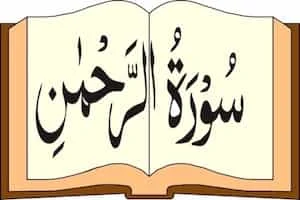 سُوْرَةُ الرَّحْمٰنِ